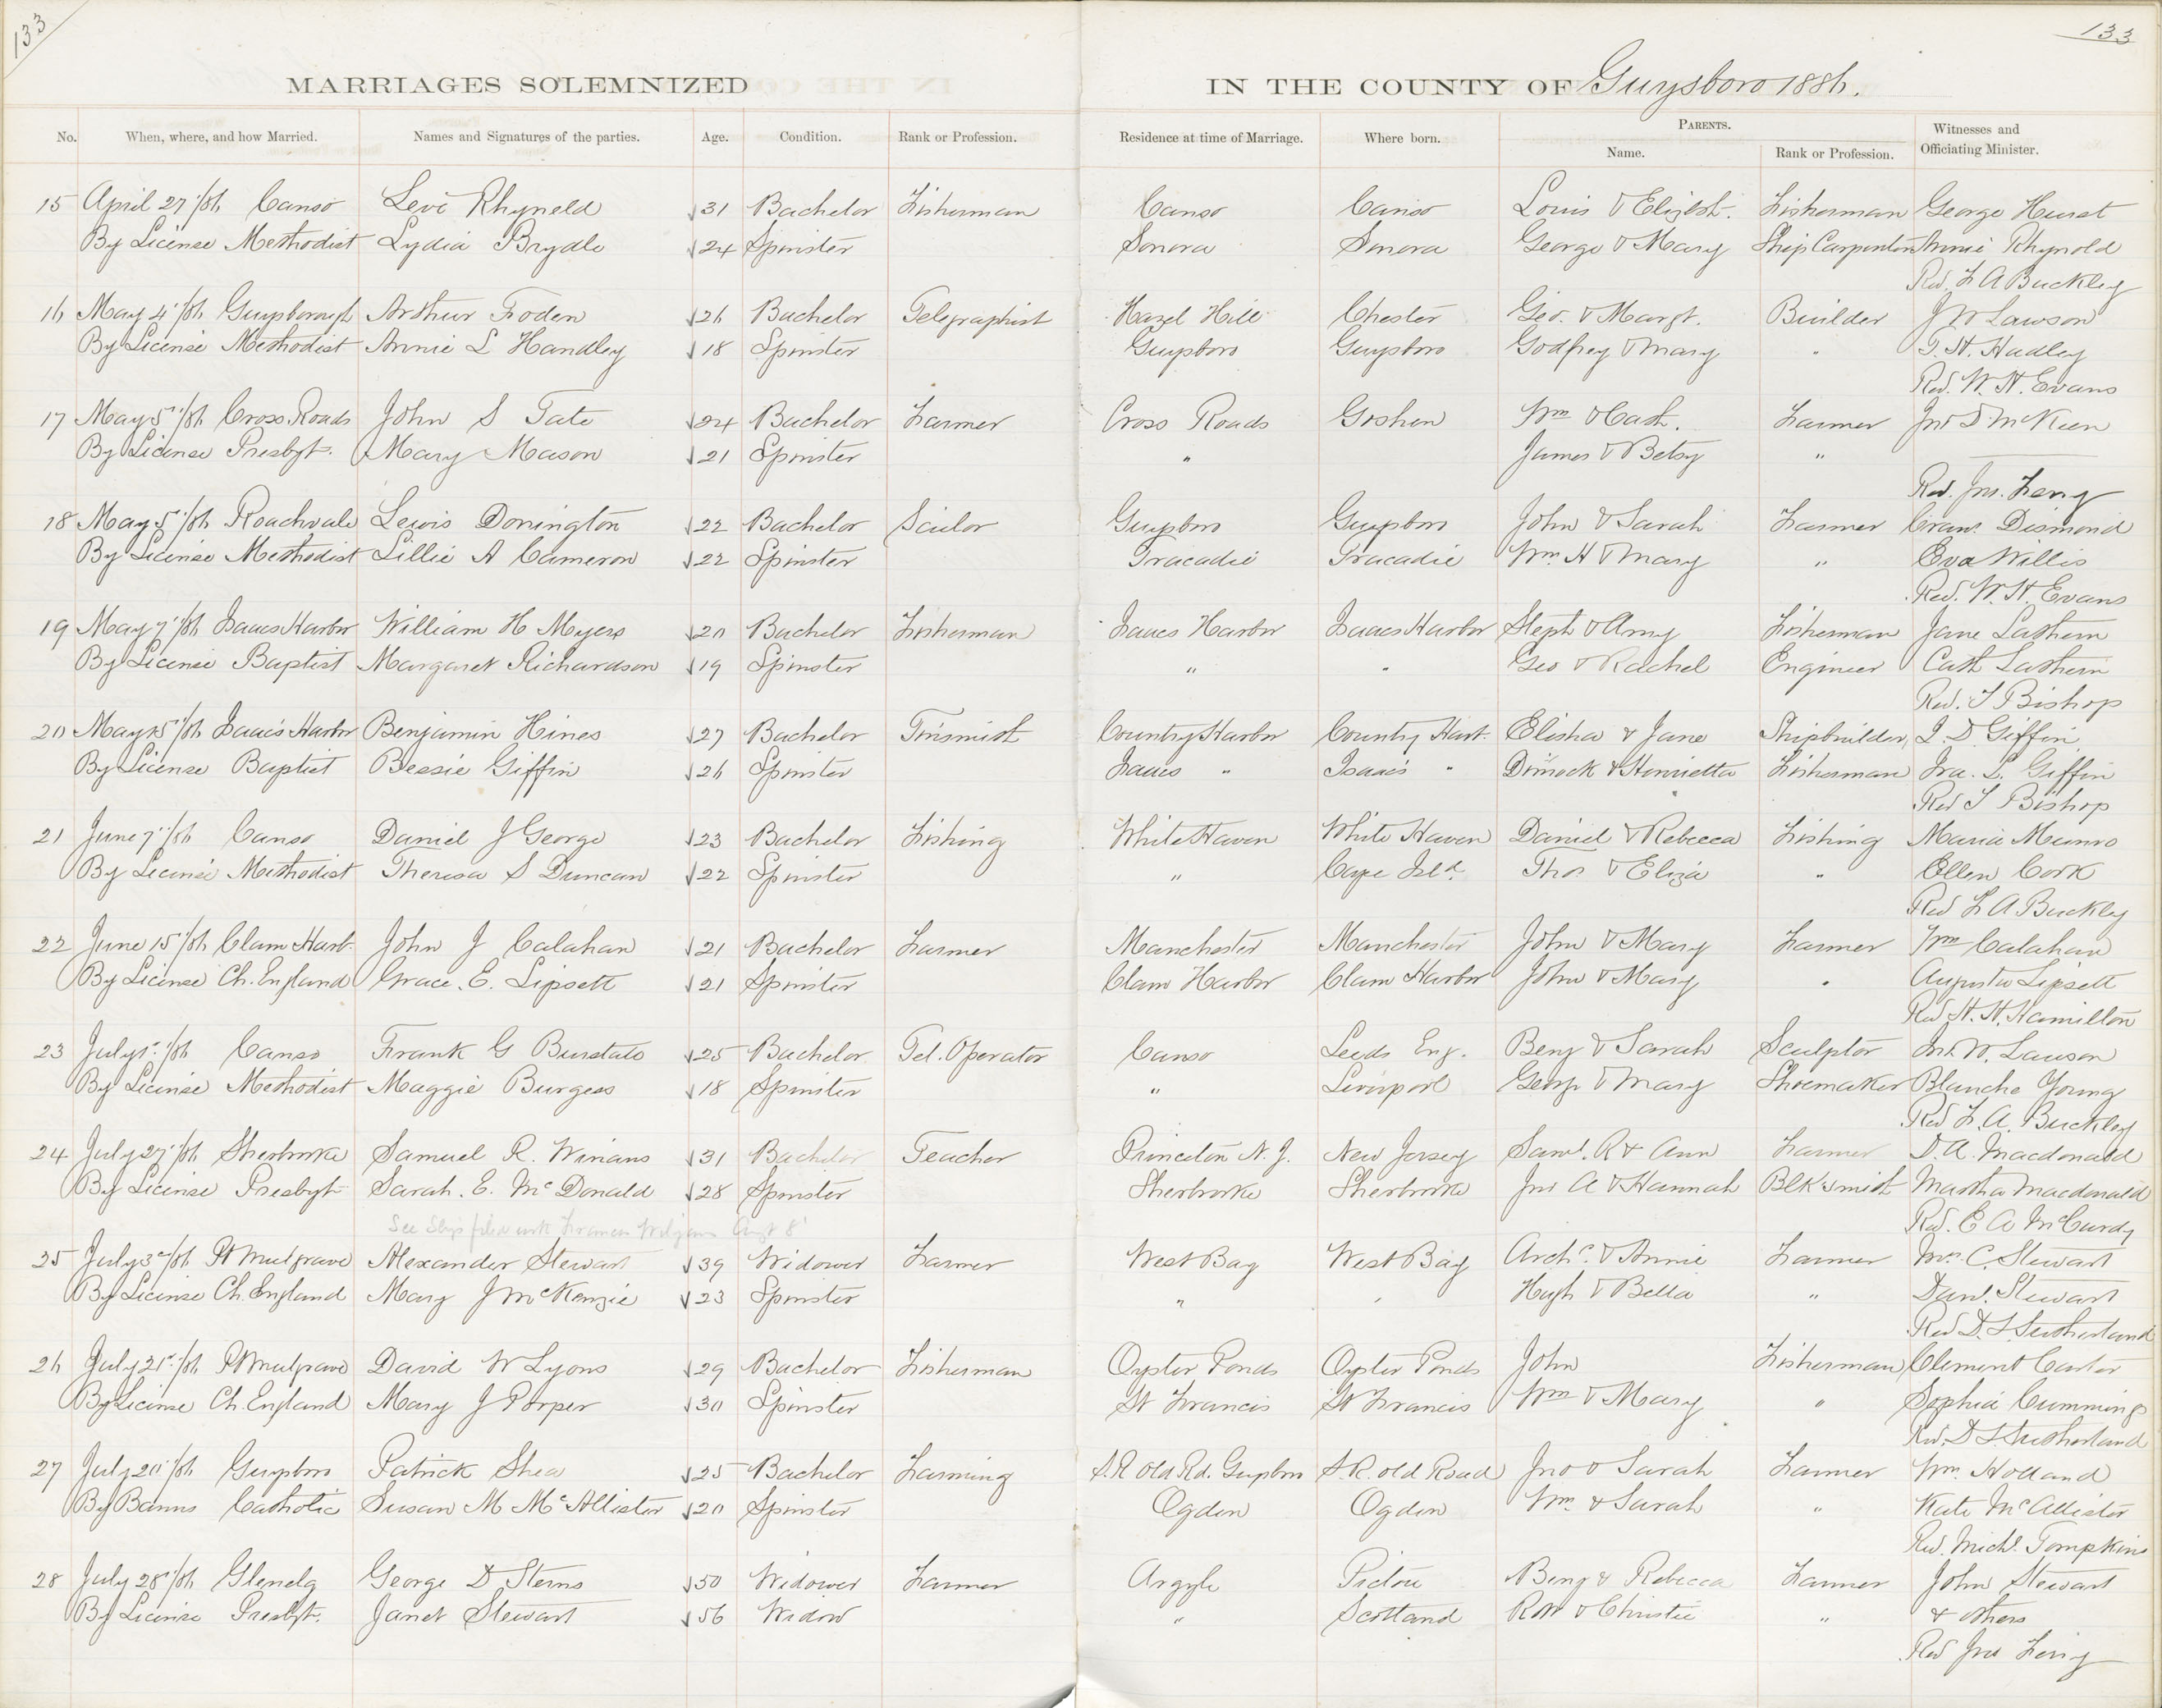 133
133
MARRIAGES SOLEMNIZED IN THE COUNTY OF Guysboro 1886.
No. When, where, and how Married. Names and Signatures of the parties. Age. Condition. Rank or Profession. Residence at time of Marriage. Where born. PARENTS. Name. Rank or Profession. Witnesses and Officiating Minister.
15 April 27"/86 Canso Levi Rhyneld 31 Bachelor Fisherman Canso Canso Louis & Elizbt. Fisherman George Hurst
By License Methodist Lydia Brydle 24 Spinster Sonora Sonora George & Mary Ship Carpenter Annie Rhynold
Rev. F A Buckley
16 May 4"/86 Guysborough Arthur Foden 26 Bachelor Telegraphist Hazel Hill Chester Geo. & Margt. Builder J W Lawson
By License Methodist Annie L Handley 18 Spinster Guysboro Guysboro Godfrey & Mary " T. H. Hadley
Rev. W. H. Evans
17 May 5"/86 Cross Roads John S Tate 24 Bachelor Farmer Cross Roads Goshen Wm & Cath. Farmer Jno S McKeen
By License Presbyt. Mary Mason 21 Spinster " James & Betsy "
Rev. Jno.
18 May 5"/86 Roachvale Lewis Donington 22 Bachelor Sailor Guysboro Guysboro John & Sarah Farmer Dismond
By License Methodist Lillie A Cameron 22 Spinster Tracadie Tracadie Wm. H & Mary " Eva Willis
Rev. W. H. Evans
19 May 7"/86 Isaacs Harbor William H Myers 20 Bachelor Fisherman Isaacs Harbor Isaacs Harbor Steph & Amy Fisherman Jane Lathem
By License Baptist Margaret Richardson 19 Spinster " " Geo & Rachel Engineer Cath Lathem
Rev. T Bishop
20 May 25"/86 Isaacs Harbor Benjamin Hines 27 Bachelor Tinsmith Country Harbor Country Harb. Elisha & Jane Shipbuilder J. D. Giffin
By License Baptist Bessie Giffin 26 Spinster Isaacs " Isaacs " Dimock & Henrietta Fisherman Ira. L. Giffin
Rev T Bishop
21 June 7"/86 Canso Daniel J George 23 Bachelor Fishing White Haven White Haven Daniel & Rebecca Fishing Maria Munro
By License Methodist Theresa S Duncan 22 Spinster " Cape Isld. Thos & Eliza " Ellen Cork
Rev F. A Buckley
22 June 15"/86 Clam Harb. John J Calahan 21 Bachelor Farmer Manchester Manchester John & Mary Farmer Wm Calahan
By License Ch. England Grace. E. Lipsett 21 Spinster Clam Harbor Clam Harbor John & Mary " Augusta Lipsett
Rev H. H. Hamilton
23 July 1"/86 Canso Frank G 25 Bachelor Tel. Operator Canso Leeds Eng. Benj & Sarah Sculptor Jno. W. Lawson
By License Methodist Maggie Burgess 18 Spinster " Liverpool George & Mary Shoemaker Blanche Young
Rev F. A. Buckley
24 July 27"/86 Sherbrooke Samuel R. Winans 31 Bachelor Teacher Princeton N. J. New Jersey Saml. R & Ann Farmer D. A. Macdonald
By License Presbyt Sarah. E. McDonald 28 Spinster Sherbrooke Sherbrooke Jno A & Hannah Blksmith Martha Macdonald
Rev. E A McCurdy
See Slip filed with
25 July 3"/86 Pt Mulgrave Alexander Stewart 39 Widower Farmer West Bay West Bay Archd. & Annie Farmer C. Stewart
By License Ch. England Mary J McKenzie 23 Spinster " " Hugh & Bella " Danl. Stewart
Rev D. S. Sutherland
26 July 21"/86 Pt Mulgrave David W Lyons 29 Bachelor Fisherman Oyster Ponds Oyster Ponds John Fisherman Clement Carter
By License Ch. England Mary J Porper 30 Spinster St Francis St Francis Wm & Mary " Sophia Cummings
Rev. D S. Sutherland
27 July 20"/86 Guysboro Patrick Shea 25 Bachelor Farming S. R old Rd. Guysboro S. R. old Road Jno & Sarah Farmer Wm. Holland
By Banns Catholic Susan M McAllister 20 Spinster Ogden Ogden Wm. & Sarah " Kate McAllister
Rev. Michl. Tompkins
28 July 28"/86 Glenelg George D Sterns 50 Widower Farmer Argyle Pictou Benj & Rebecca Farmer John Stewart
By License Presbyt. Janet Stewart 56 Widow " Scotland Robt & Christie " & others
Rev Jno